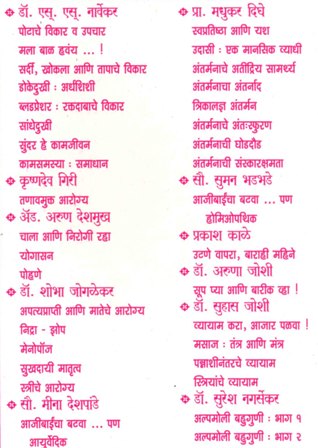 ❖ डॉ. एस्. एस्. नार्वेकर
पोटाचे विकार व उपचार
मला बाळ हवंय ... !
सर्दी, खोकला आणि तापाचे विकार
डोकेदुखी : अर्धशिशी
ब्लडप्रेशर : रक्तदाबाचे विकार
सांधेदुखी
सुंदर हे कामजीवन
कामसमस्या : समाधान
❖ कृष्णदेव गिरी
तणावमुक्त आरोग्य
❖ अ‍ॅड. अरुण देशमुख
चाला आणि निरोगी रहा
योगासन
पोहणे
❖ डॉ. शोभा जोगळेकर
अपत्यप्राप्ती आणि मातेचे आरोग्य
निद्रा - झोप
मेनोपॉज
सुखदायी मातृत्व
स्त्रीचे आरोग्य
❖ सौ. मीना देशपांडे
आजीबाईंचा बटवा ... पण
आयुर्वेदिक
❖ प्रा. मधुकर दिघे
स्वप्रतिष्ठा आणि यश
उदासी : एक मानसिक व्याधी
अंतर्मनाचे अतींद्रिय सामर्थ्य
अंतर्मनाचा अंतर्नाद
त्रिकालज्ञ अंतर्मन
अंतर्मनाचे अंतःस्फुरण
अंतर्मनाची घोडदौड
अंतर्मनाची संस्कारक्षमता
❖ सौ. सुमन भडभडे
आजीबाईंचा बटवा ... पण
होमिओपथिक
❖ प्रकाश काळे
उटणे वापरा, बाराही महिने
❖ डॉ. अरुणा जोशी
सूप प्या आणि बारीक व्हा !
❖ डॉ. सुहास जोशी
व्यायाम करा, आजार पळवा !
मसाज : तंत्र आणि मंत्र
पन्नाशीनंतरचे व्यायाम
स्त्रियांचे व्यायाम
❖ डॉ. सुरेश नगर्सेकर
अल्पमोली बहुगुणी : भाग १
अल्पमोली बहुगुणी : भाग २